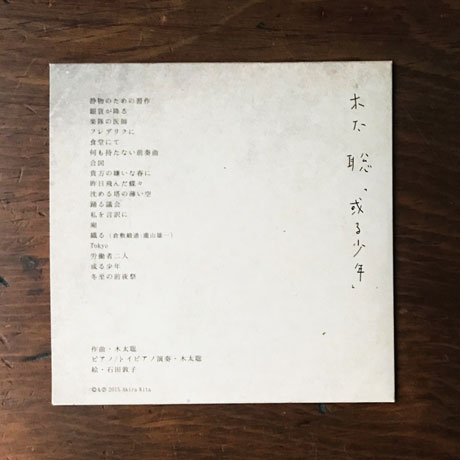 木太 聡「或る少年」
静物のための習作
銀貨が降る
楽隊の医師
フレデリクに
食堂にて
何も持たない前奏曲
合図
貴方の嫌いな春に
昨日飛んだ蝶々
沈める塔の薄い空
踊る議会
私を言訳に
織る (倉敷緞通・瀧山雄一)
Tokyo
労働者二人
或る少年
冬里の前夜祭
作曲・木太聡
ピアノ/トイピアノ演奏・木太聡
絵・石田
2015 Akira Kita